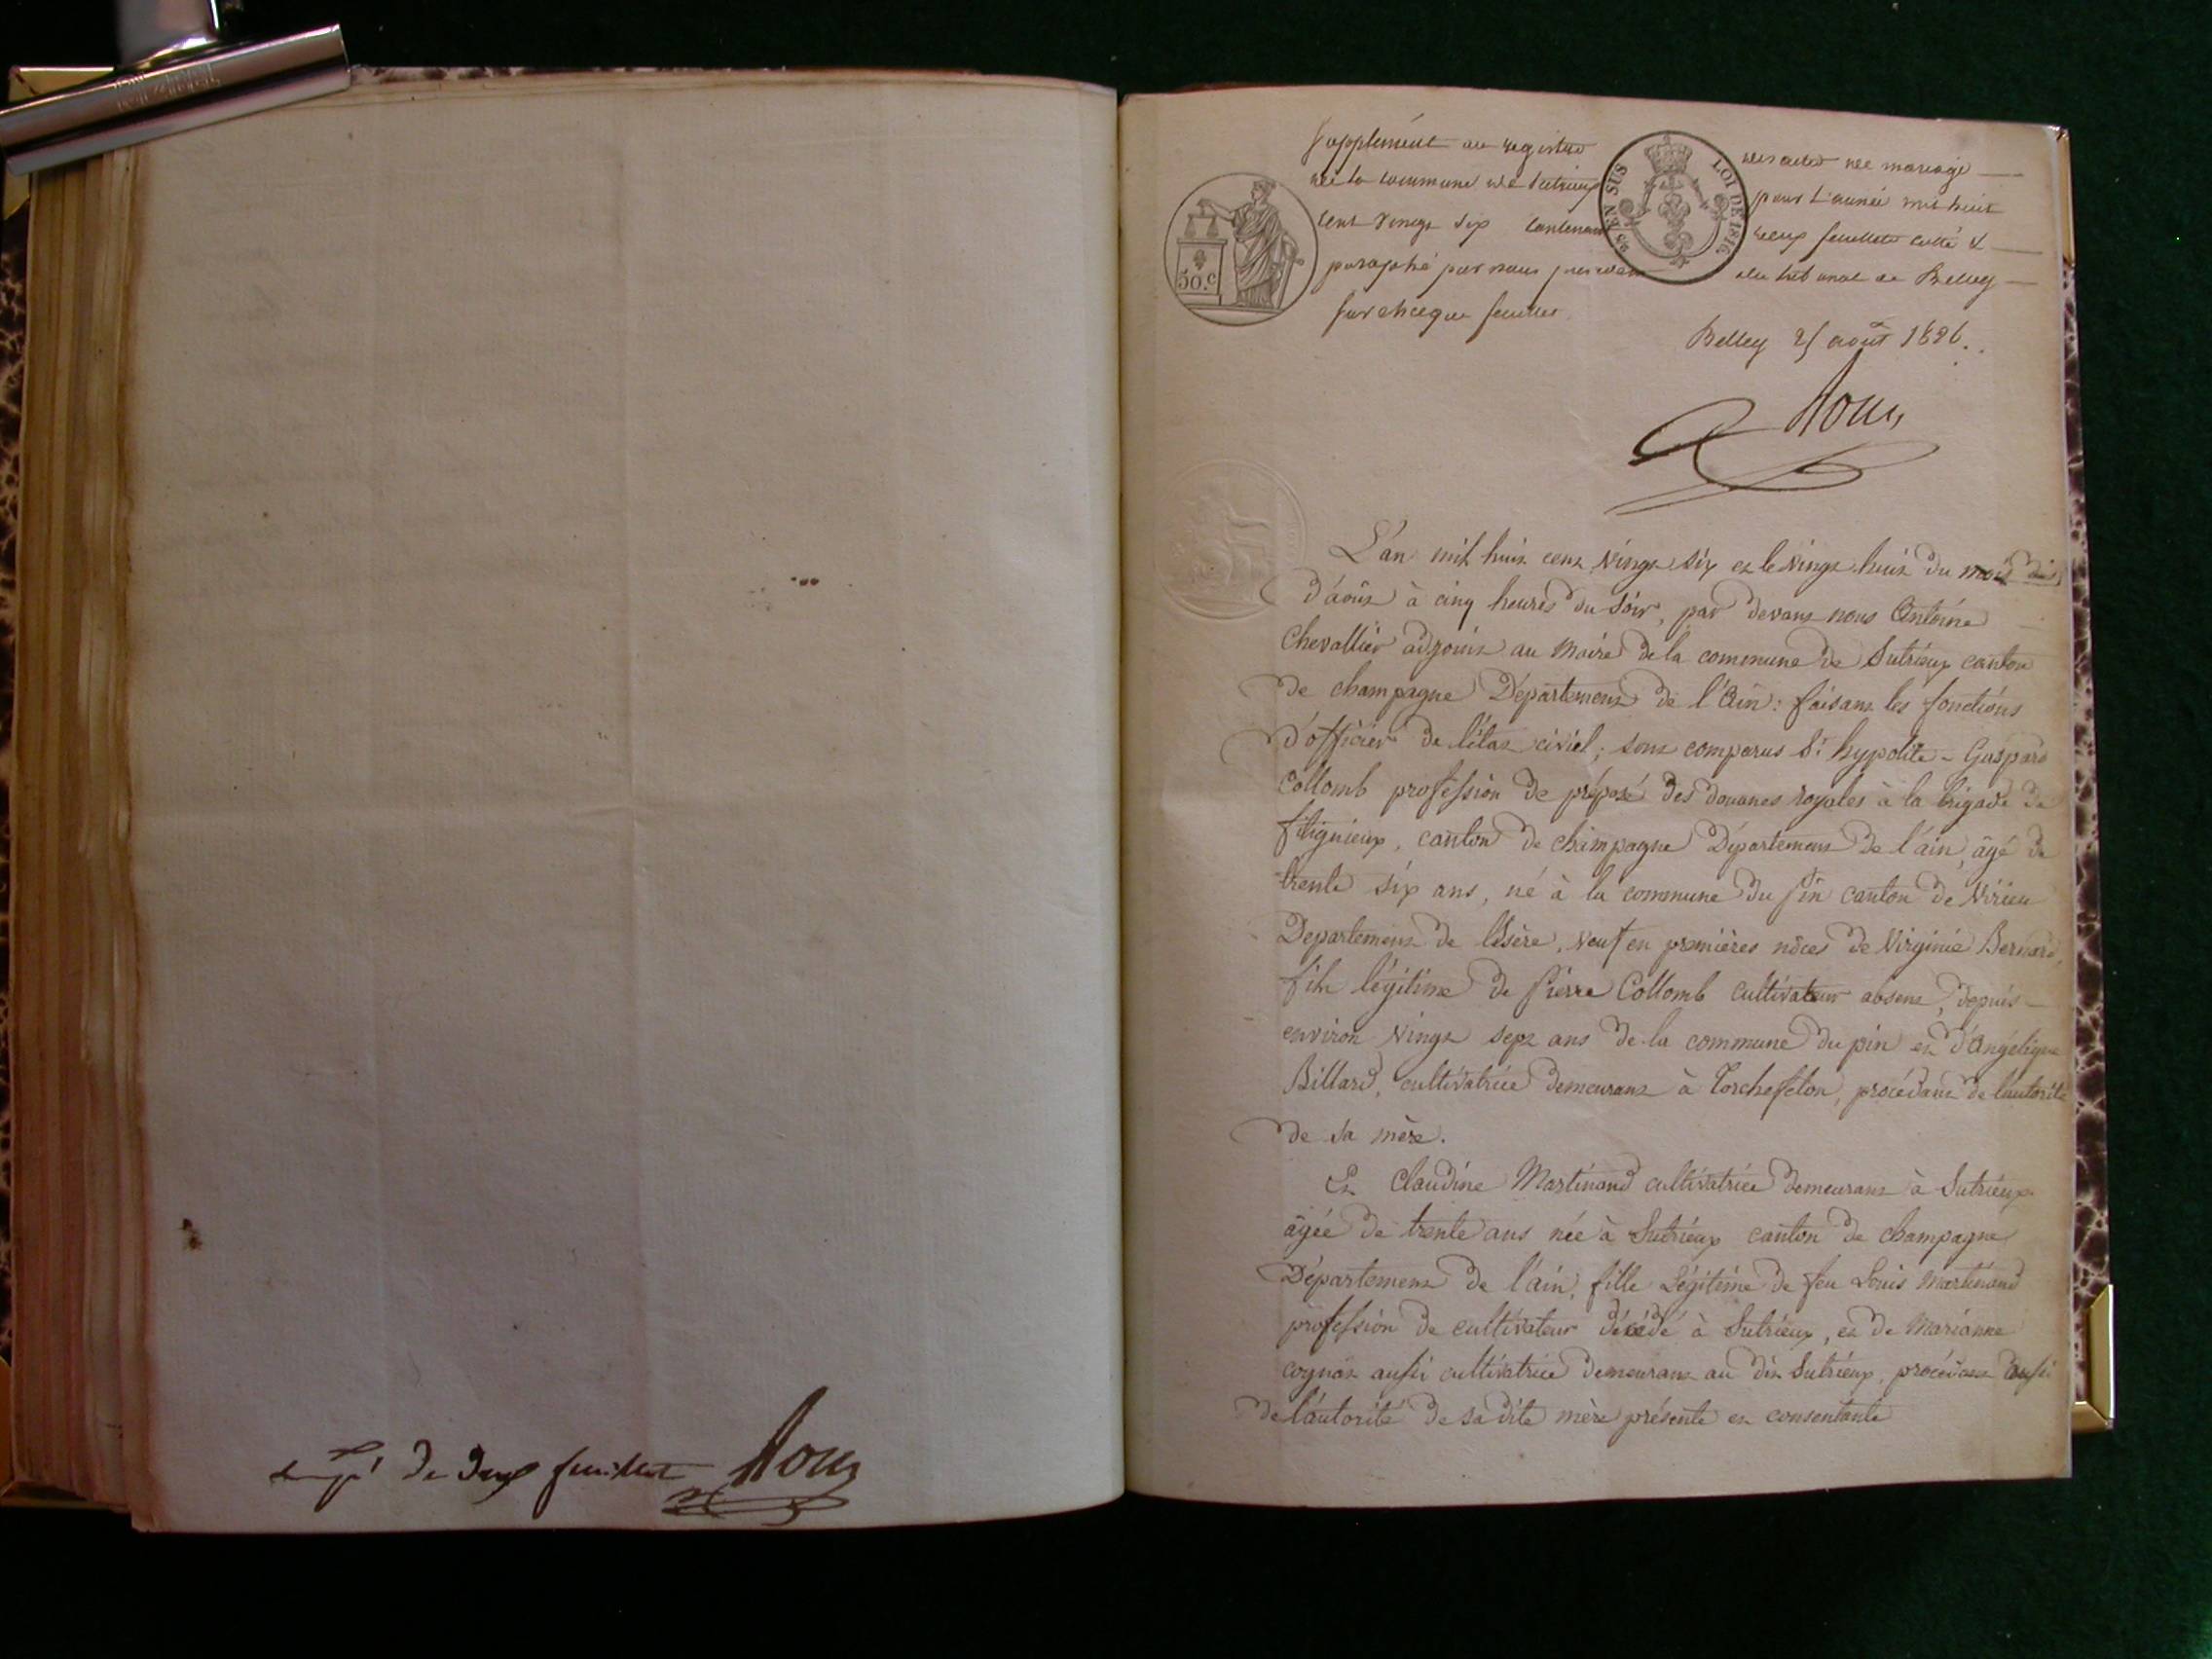 de deux feuillets
Supplément au registre des actes de mariage
de la commune de Sutrieux pour l'année mil huit
cent vingt six contenant deux feuillets cotté &
paraphé par nous president du tribunal de Belley
sur chaque feuillet
50.c
25 EN SUS
LOI DE 1816
Belley 25 août 1826.
L'an mil huit cent vingt six et le vingt huit du mois
d'août à cinq heures du soir, par devant nous Antoine
Chevallier adjoint au Maire de la commune de Sutrieux canton
de champagne Département de l'Ain: faisant les fonctions
d'officier de l'état civiel; sont comparus Sr. hypolite - Gaspard
Collomb profession de préposé des douanes royales à la brigade de
fitignieux, canton de champagne Département de l'ain, âgé de
trente six ans, né à la commune du pin canton de Virieu
Departement de l'isère, veuf en premières nôces de Virginie Bernard,
fils légitime de Pierre Collomb cultivateur absent, depuis
environ vingt sept ans de la commune du pin et d'Angélique
Billard, cultivatrice demeurant à Torchefelon, procédant de l'autorité
de sa mère.
Et Claudine Martinand cultivatrice demeurant à Sutrieux
âgée de trente ans née à Sutrieux canton de champagne
Département de l'ain, fille Légitime de feu Louis Martinand
profession de cultivateur décédé à Sutrieux, et de Marianne
cognat aussi cultivatrice demeurant au dit Sutrieux, procédant aussi
de l'autorité de sa dite mère présente et consentante